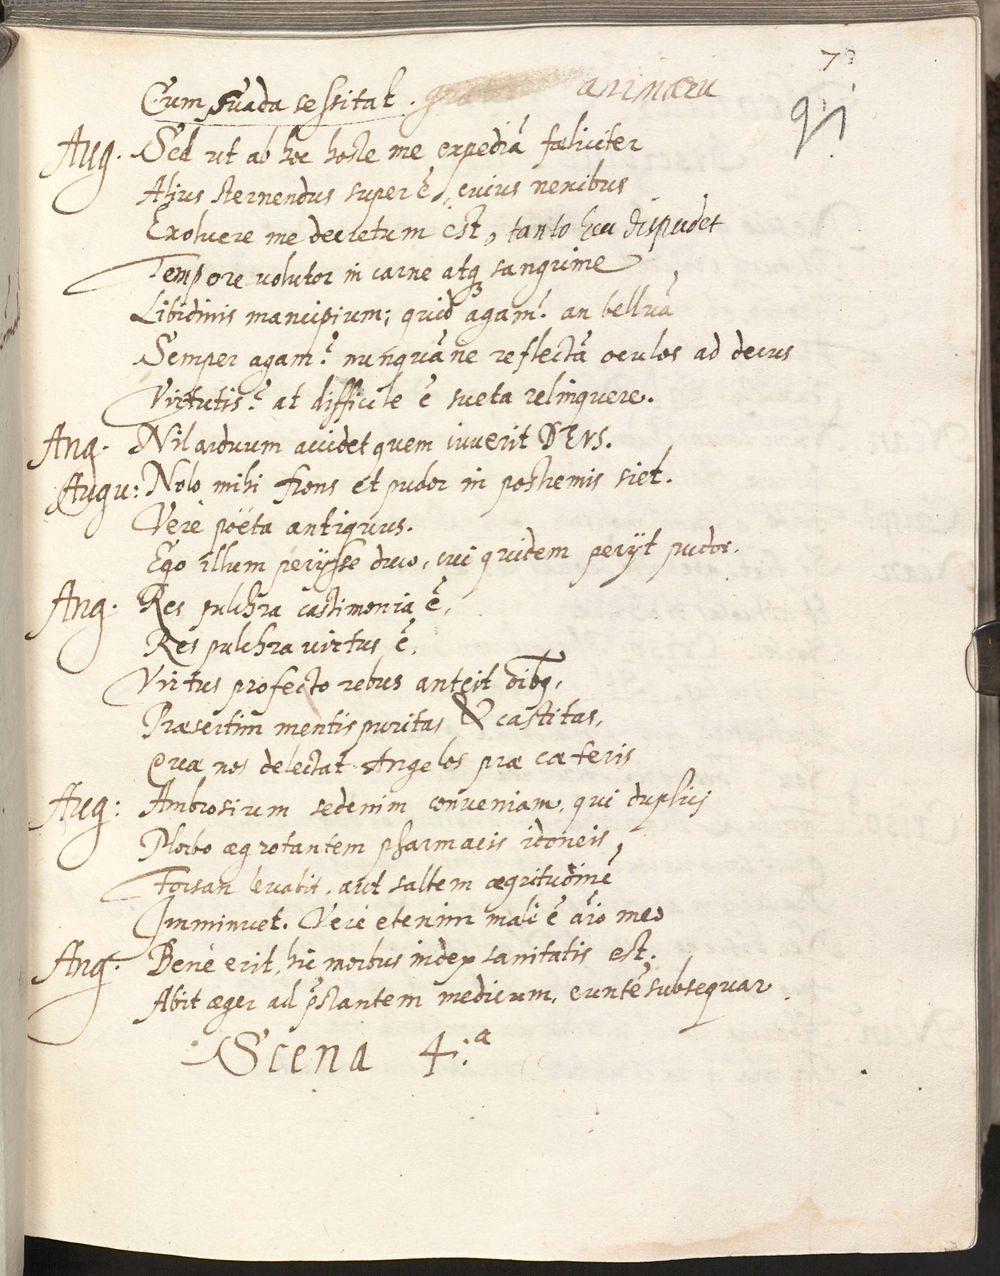 78
91
Cum suada sessitat. animæ
Aug. Sed ut ab hoc hoste me expediã fæliciter
Alius sternendus super ẽ, cuius nexibus
Exoluere me decretum est, tanto heu dispudet
Tempore volutor in carne atq sanguine
Libidinis mancipium; quid agam? an belluã
Semper agam? nunquãne reflectã oculos ad decus
Virtutis? at difficile ẽ sueta relinquere.
Ang. Nil arduum accidet quem iuverit DEVS.
Augu: Nolo mihi frons et pudor in postremis siet.
Verè poëta antiquus.
Ego illum perijsse duco, cui quidem perijt pudor.
Ang. Res pulchra castimonia ẽ,
Res pulchra virtus ẽ,
Virtus profecto rebus anteit õibq,
Præsertim mentis puritas & castitas,
Quæ nos delectat Angelos præ cæteris
Aug: Ambrosium sed enim conveniam, qui duplicj
Morbo ægrotantem pharmacis idoneis,
Forsan levabit, aut saltem ægritudinẽ
Imminuet. Verè etenim malè ẽ aĩo meo
Ang. Benè erit, hic morbus index sanitatis est.
Abit æger ad p̃stantem medicum, euntẽ subsequar
Scena 4.ª